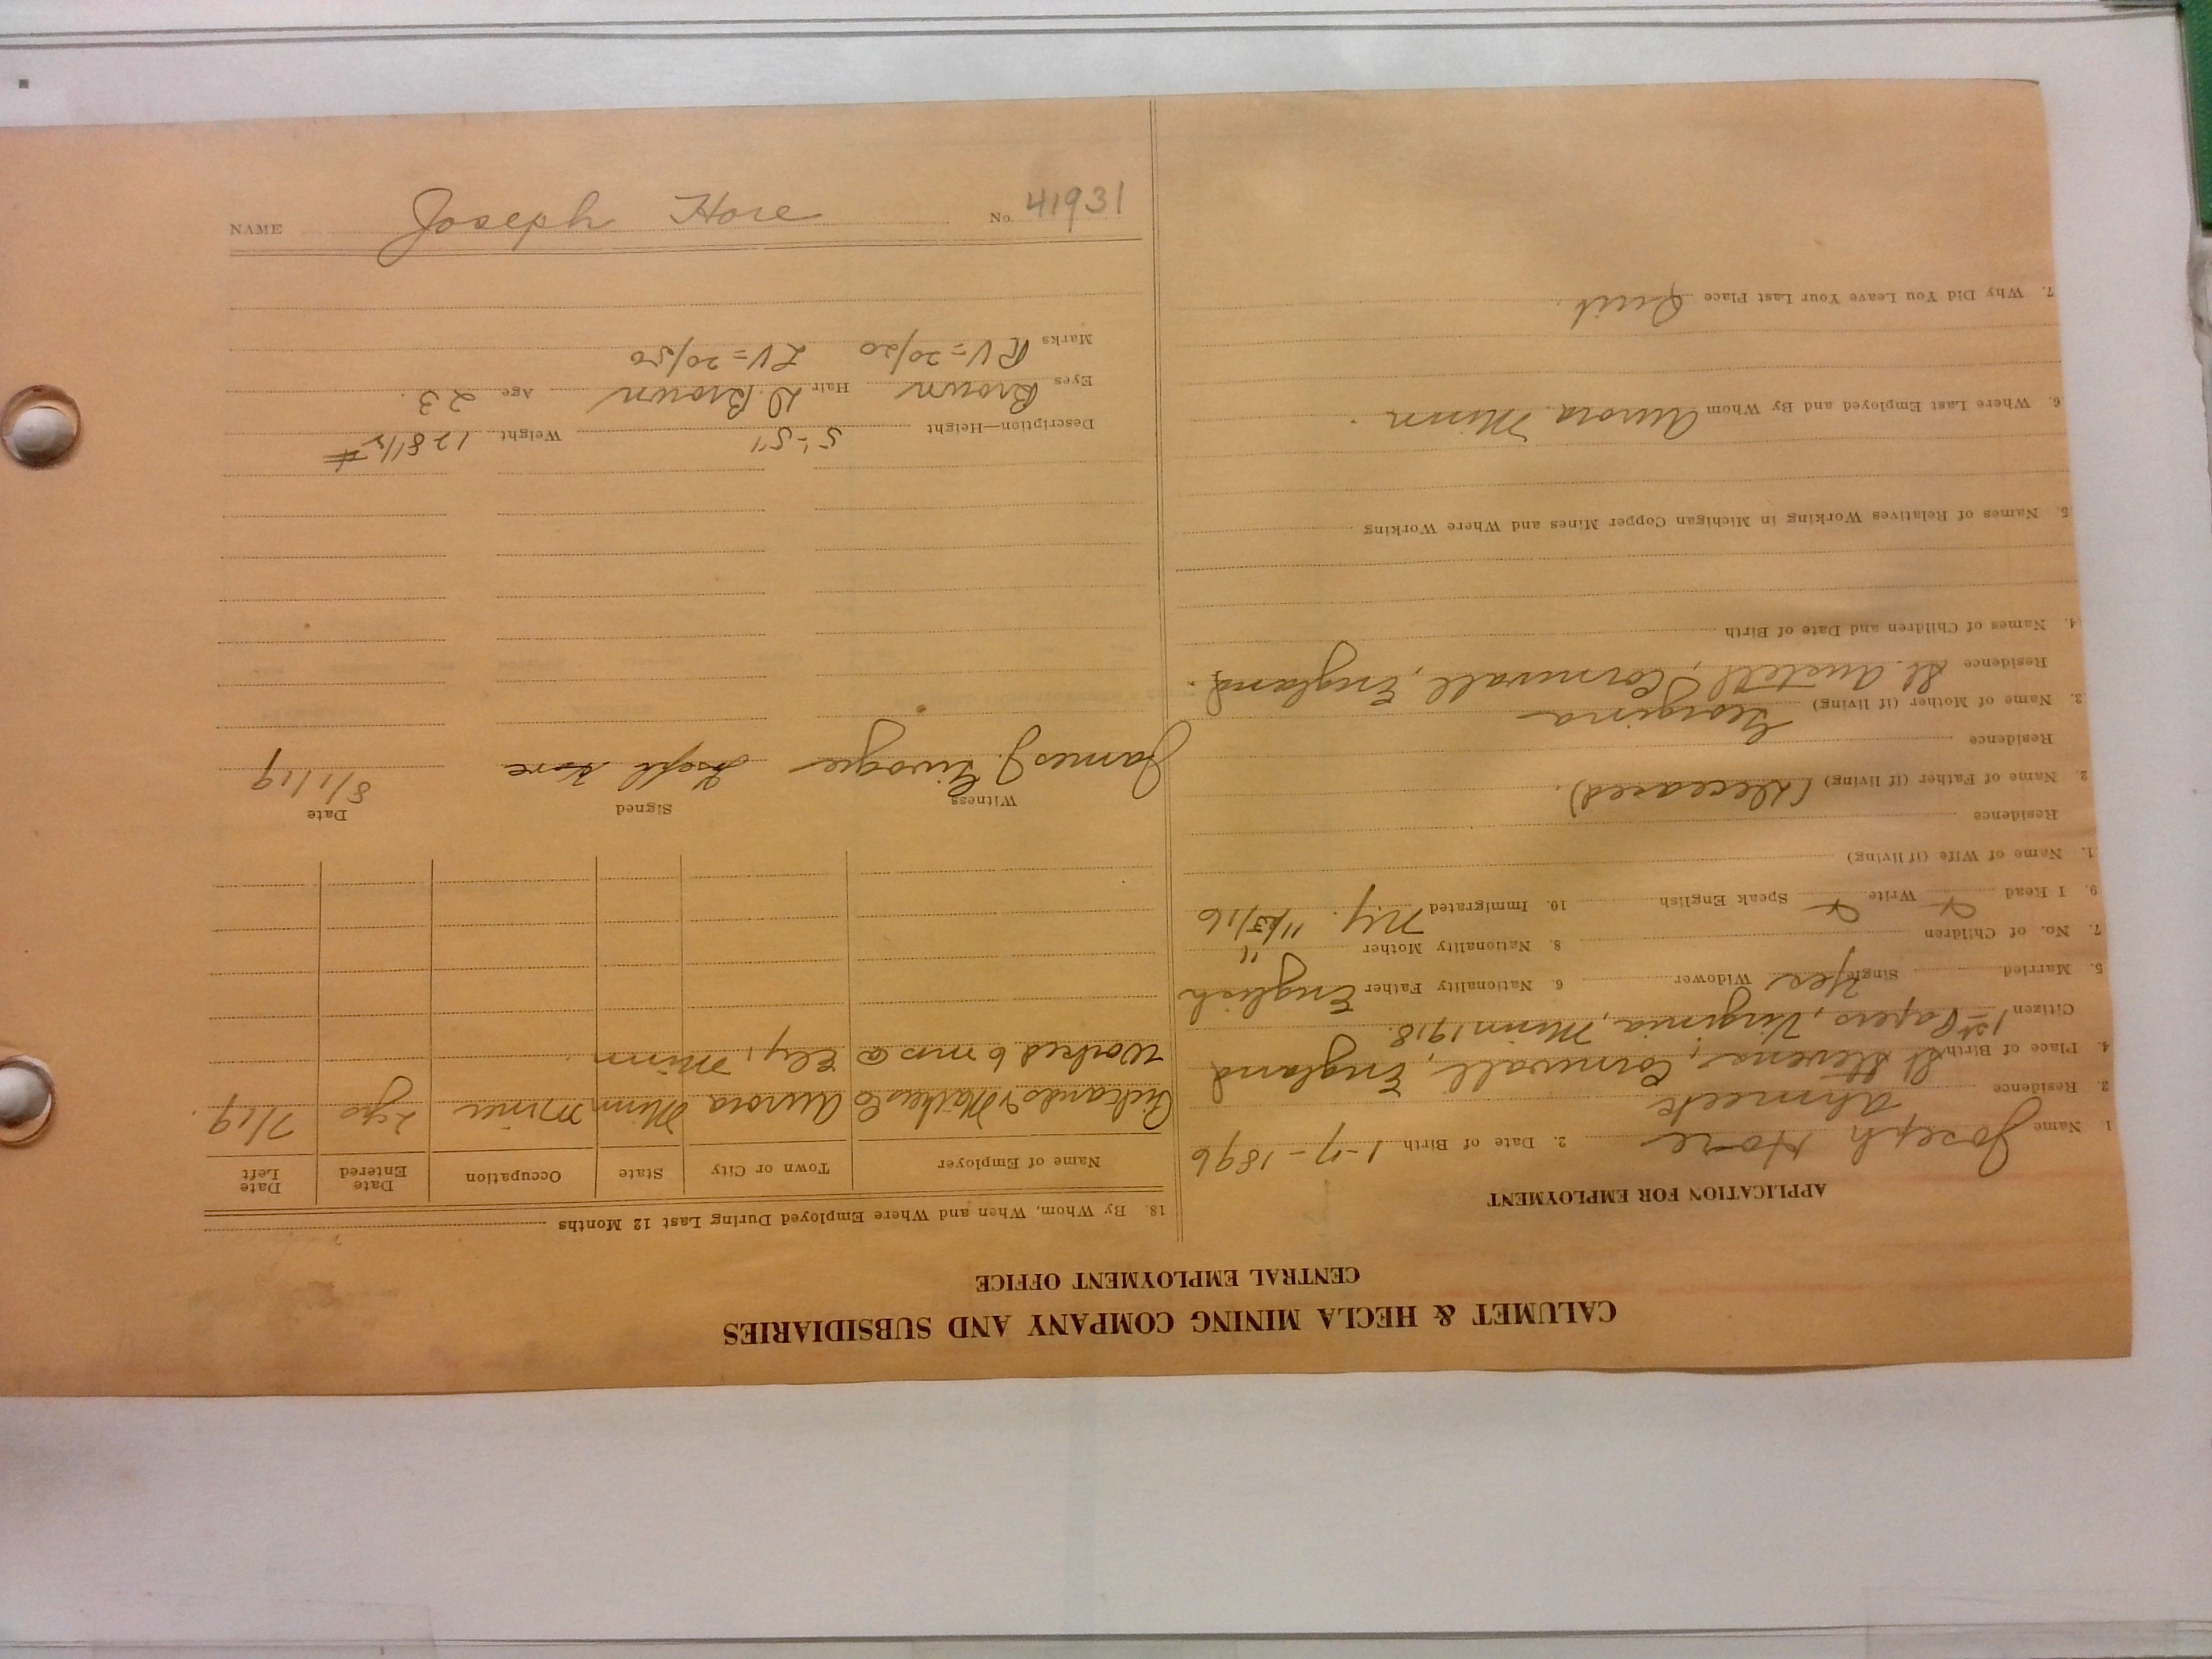 CALUMET & HECLA MINING COMPANY AND SUBSIDIARIES
CENTRAL EMPLOYMENT OFFICE
APPLICATION FOR EMPLOYMENT
1. Name Joseph Hore 2. Date of Birth 1-17-1896
3. Residence Ahmeek
4. Place of Birth St Stevens, Cornwall, England
Citizen 1st Papers, Virginia, Minn 1918.
5. Married Single Yes Widower 6. Nationality Father English
7. No. of Children 8. Nationality Mother "
9. I Read Write Speak English 10. Immigrated N.Y. 11/23/16
1. Name of Wife (if living)
Residence
2. Name of Father (if living) (Deceased).
Residence
3. Name of Mother (if living) Georgina
Residence St. Austell, Cornwall, England.
4. Names of Children and Date of Birth
5. Names of Relatives Working in Michigan Copper Mines and Where Working
6. Where Last Employed and By Whom Aurora Minn.
7. Why Did You Leave Your Last Place Quit.
18. By Whom, When and Where Employed During Last 12 Months
Name of Employer Town or City State Occupation Date Entered Date Left
Aurora Minn Miner 2 yrs 7/19.
Worked 6 mos @ Ely, Minn.
Witness Signed Date
James J. Joseph Hore 8/1/19
Description—Height 5'-5" Weight 128 1/2 #
Eyes Brown Hair D. Brown Age 23.
Marks RV=20/20 LV=20/50
NAME Joseph Hore No. 41931